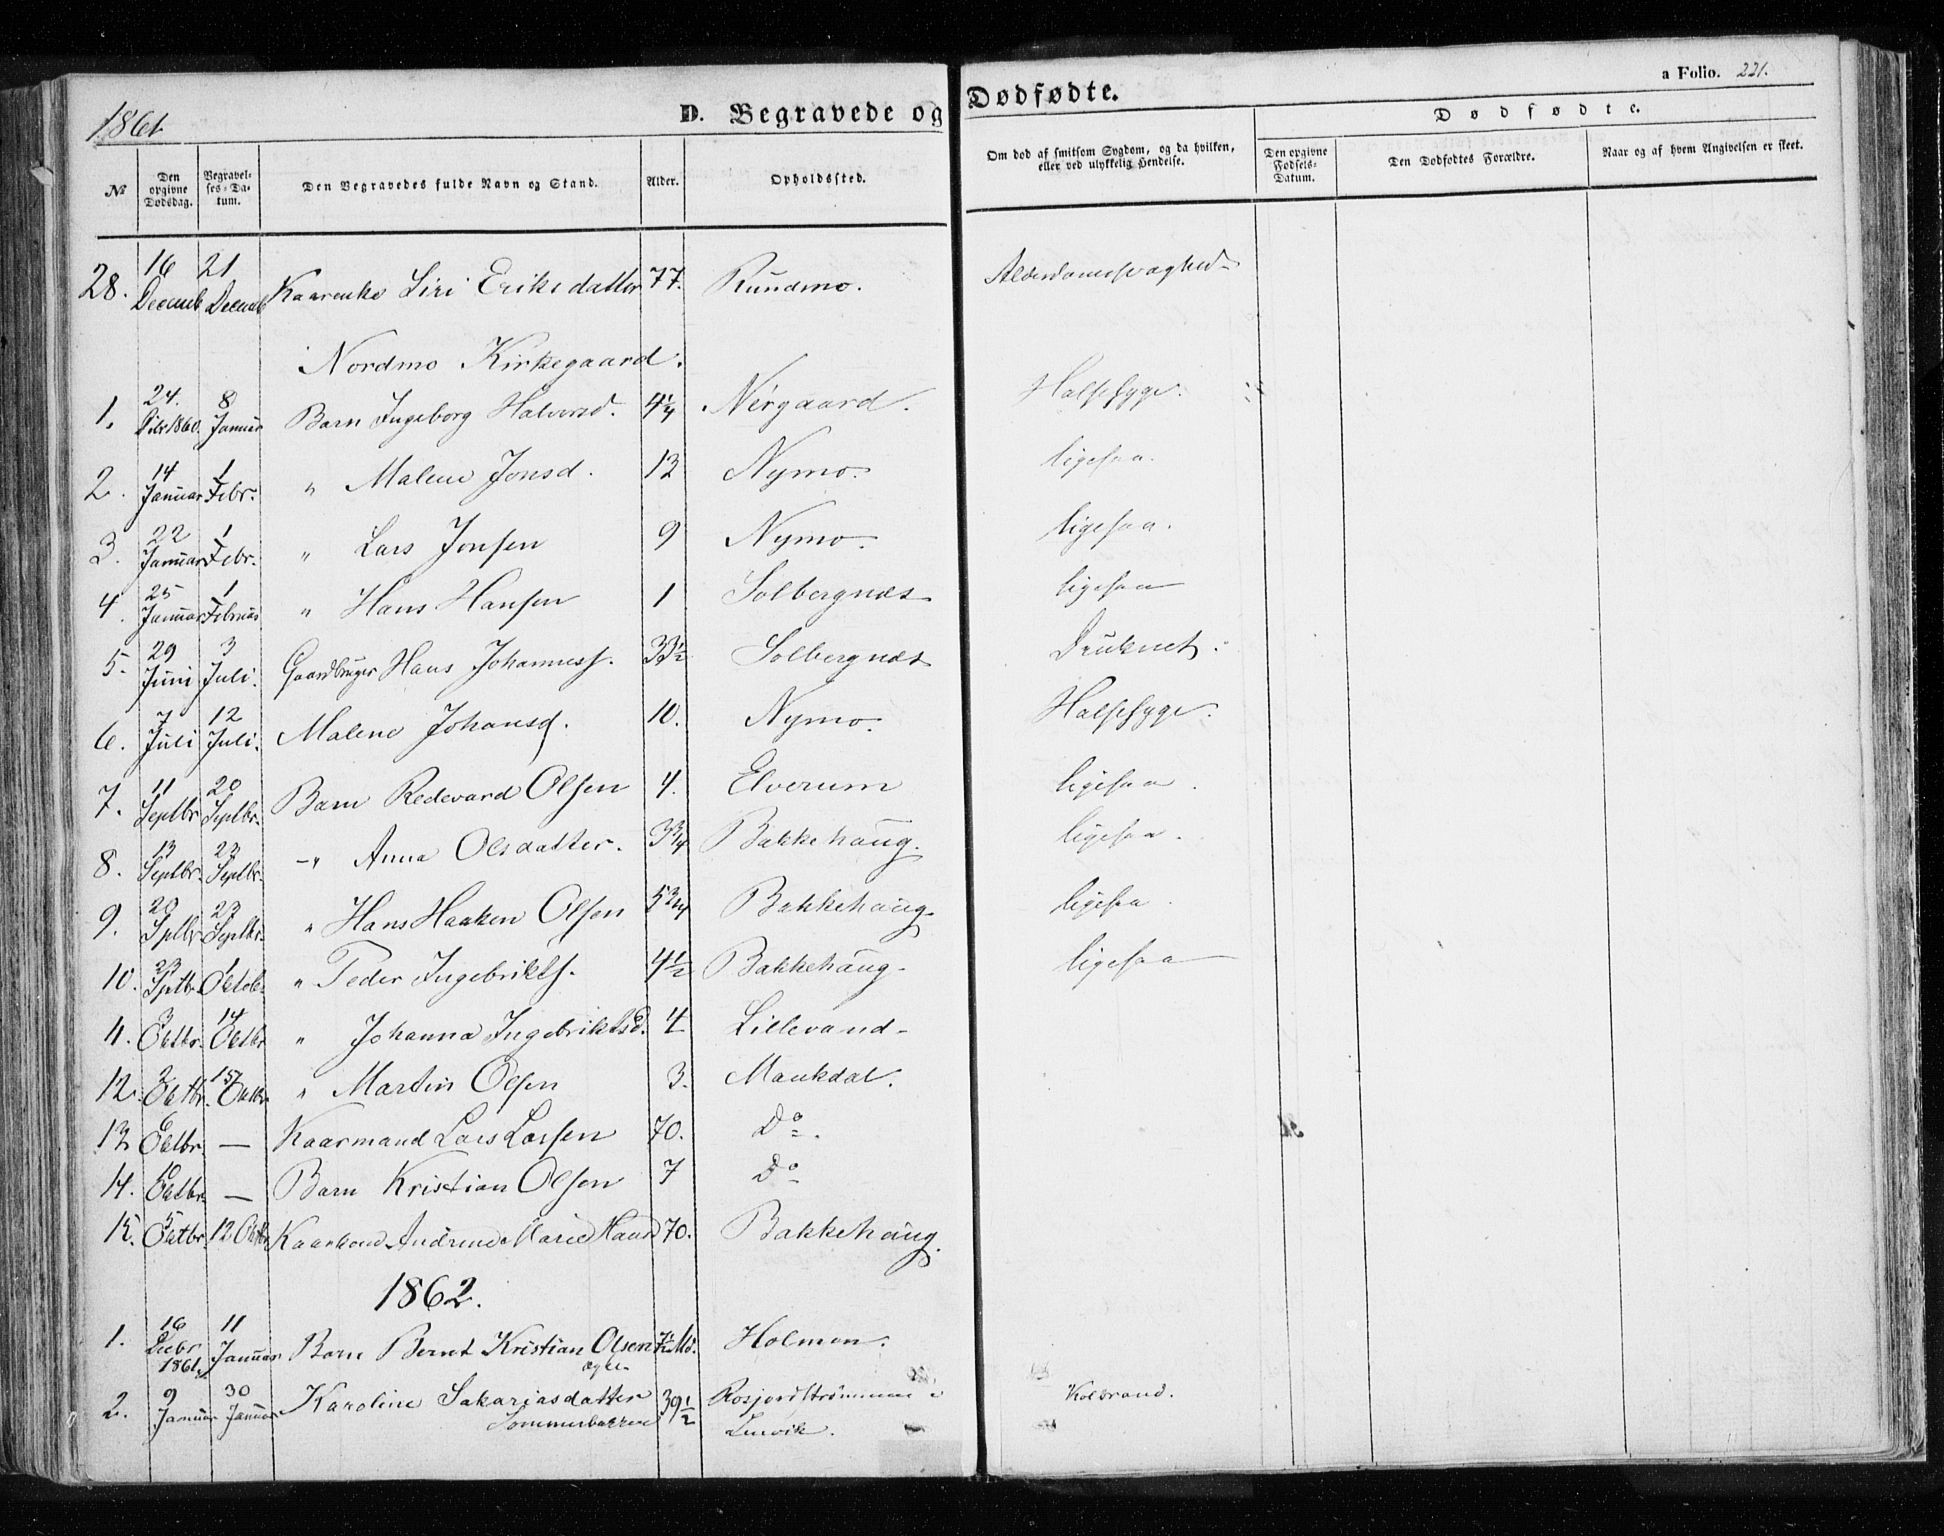 1861
D. Begravede og Dødfødte.
a Folio. 221.
№
Den opgivne Dødsdag.
Begravelses-Datum.
Den Begravedes fulde Navn og Stand.
Alder.
Opholdssted.
Om død af smitsom Sygdom, og da hvilken, eller ved ulykkelig Hendelse.
Dødfødte.
Den opgivne Fødsels-Datum.
Den Dødfødtes Forældre.
Naar og af hvem Angivelsen er skeet.
28. 16 Decemb 21 Decemb Kaarenke Siri Eriksdatter 77. Rundmo. Alderdomssvaghed
Nordmo Kirkegaard.
1. 24. Dcbr 1860. 8 Januar Barn Ingeborg Halvorsd. 4 1/4 Nergaard. Halssyge.
2. 14 Januar 1 Febr. " Malene Jonsd. 12 Nymo. ligesaa.
3. 22 Januar 1 Febr. " Lars Jonsen 9 Nymo. ligesaa.
4. 25 Januar 1 Februar " Hans Hansen 1 Solbergnæs ligesaa
5. 29 Juni 3 Juli. Gaardbruger Hans Johanness. 33 1/2 Solbergnæs Druknet.
6. 7 Juli 12 Juli. Malene Johansd. 10. Nymo. Halssyge.
7. 11 Septbr 20 Septbr. Barn Redevard Olsen 4. Elverum ligesaa.
8. 13 Septbr. 23 Septbr. " Anna Olsdatter. 3 3/4 Bakkehaug. ligesaa.
9. 20 Sptbr 23 Septbr. " Hans Haaken Olsen 5 3/4 Bakkehaug. ligesaa.
10. 23 Sptbr. 1 Octob. " Peder Ingebrikts. 4 1/2 Bakkehaug. ligesaa
11. 3 Octbr. 14 Octbr " Johanna Ingebriktsd. 4 Lillevand
12. 2 Octbr. 15 Octbr. " Martin Olsen 3. Maukdal.
13 6 Octbr. — Kaarmand Lars Larsen 70. Do.
14. 10 Octbr. — Barn Kristian Olsen 7 Do
15. 5 Octbr. 12 Octbr Kaarkone Andrine Marie Hansd 70. Bakkehaug.
1862.
1. 16 Decbr 1861. 11 Januar Barn Bernt Kristian Olsen 7 1/2 Mo. Holmen.
ægte
2. 9 Januar 30 Januar Karoline Sakariasdatter 39 1/2 Rosjordstrømmen i Koldbrand.
Sommerbakken Lenvik.